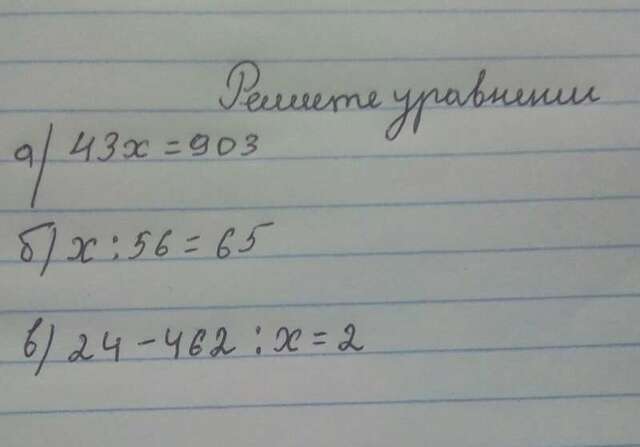 Решите уравнении
а) 43x = 903
б) x : 56 = 65
в) 24 - 462 : x = 2